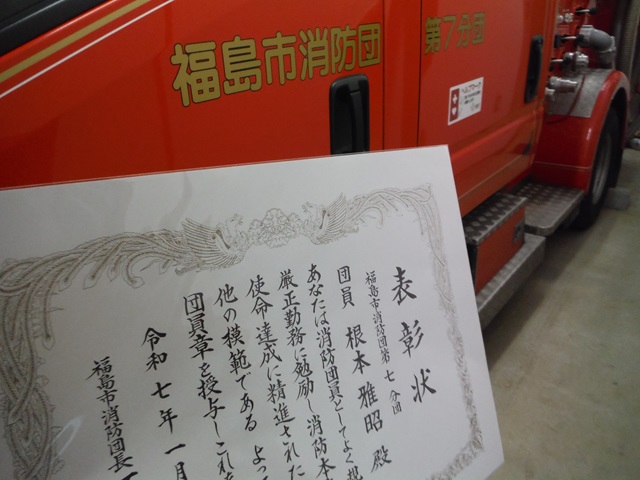 福島市消防団
第7分団
表彰状
福島市消防団第七分団
団員 根本雅昭 殿
あなたは消防団員としてよく規
厳正勤務に勉励し消防本
使命達成に精進された
他の模範である よっ
団員章を授与しこれを
令和七年一月
福島市消防団長